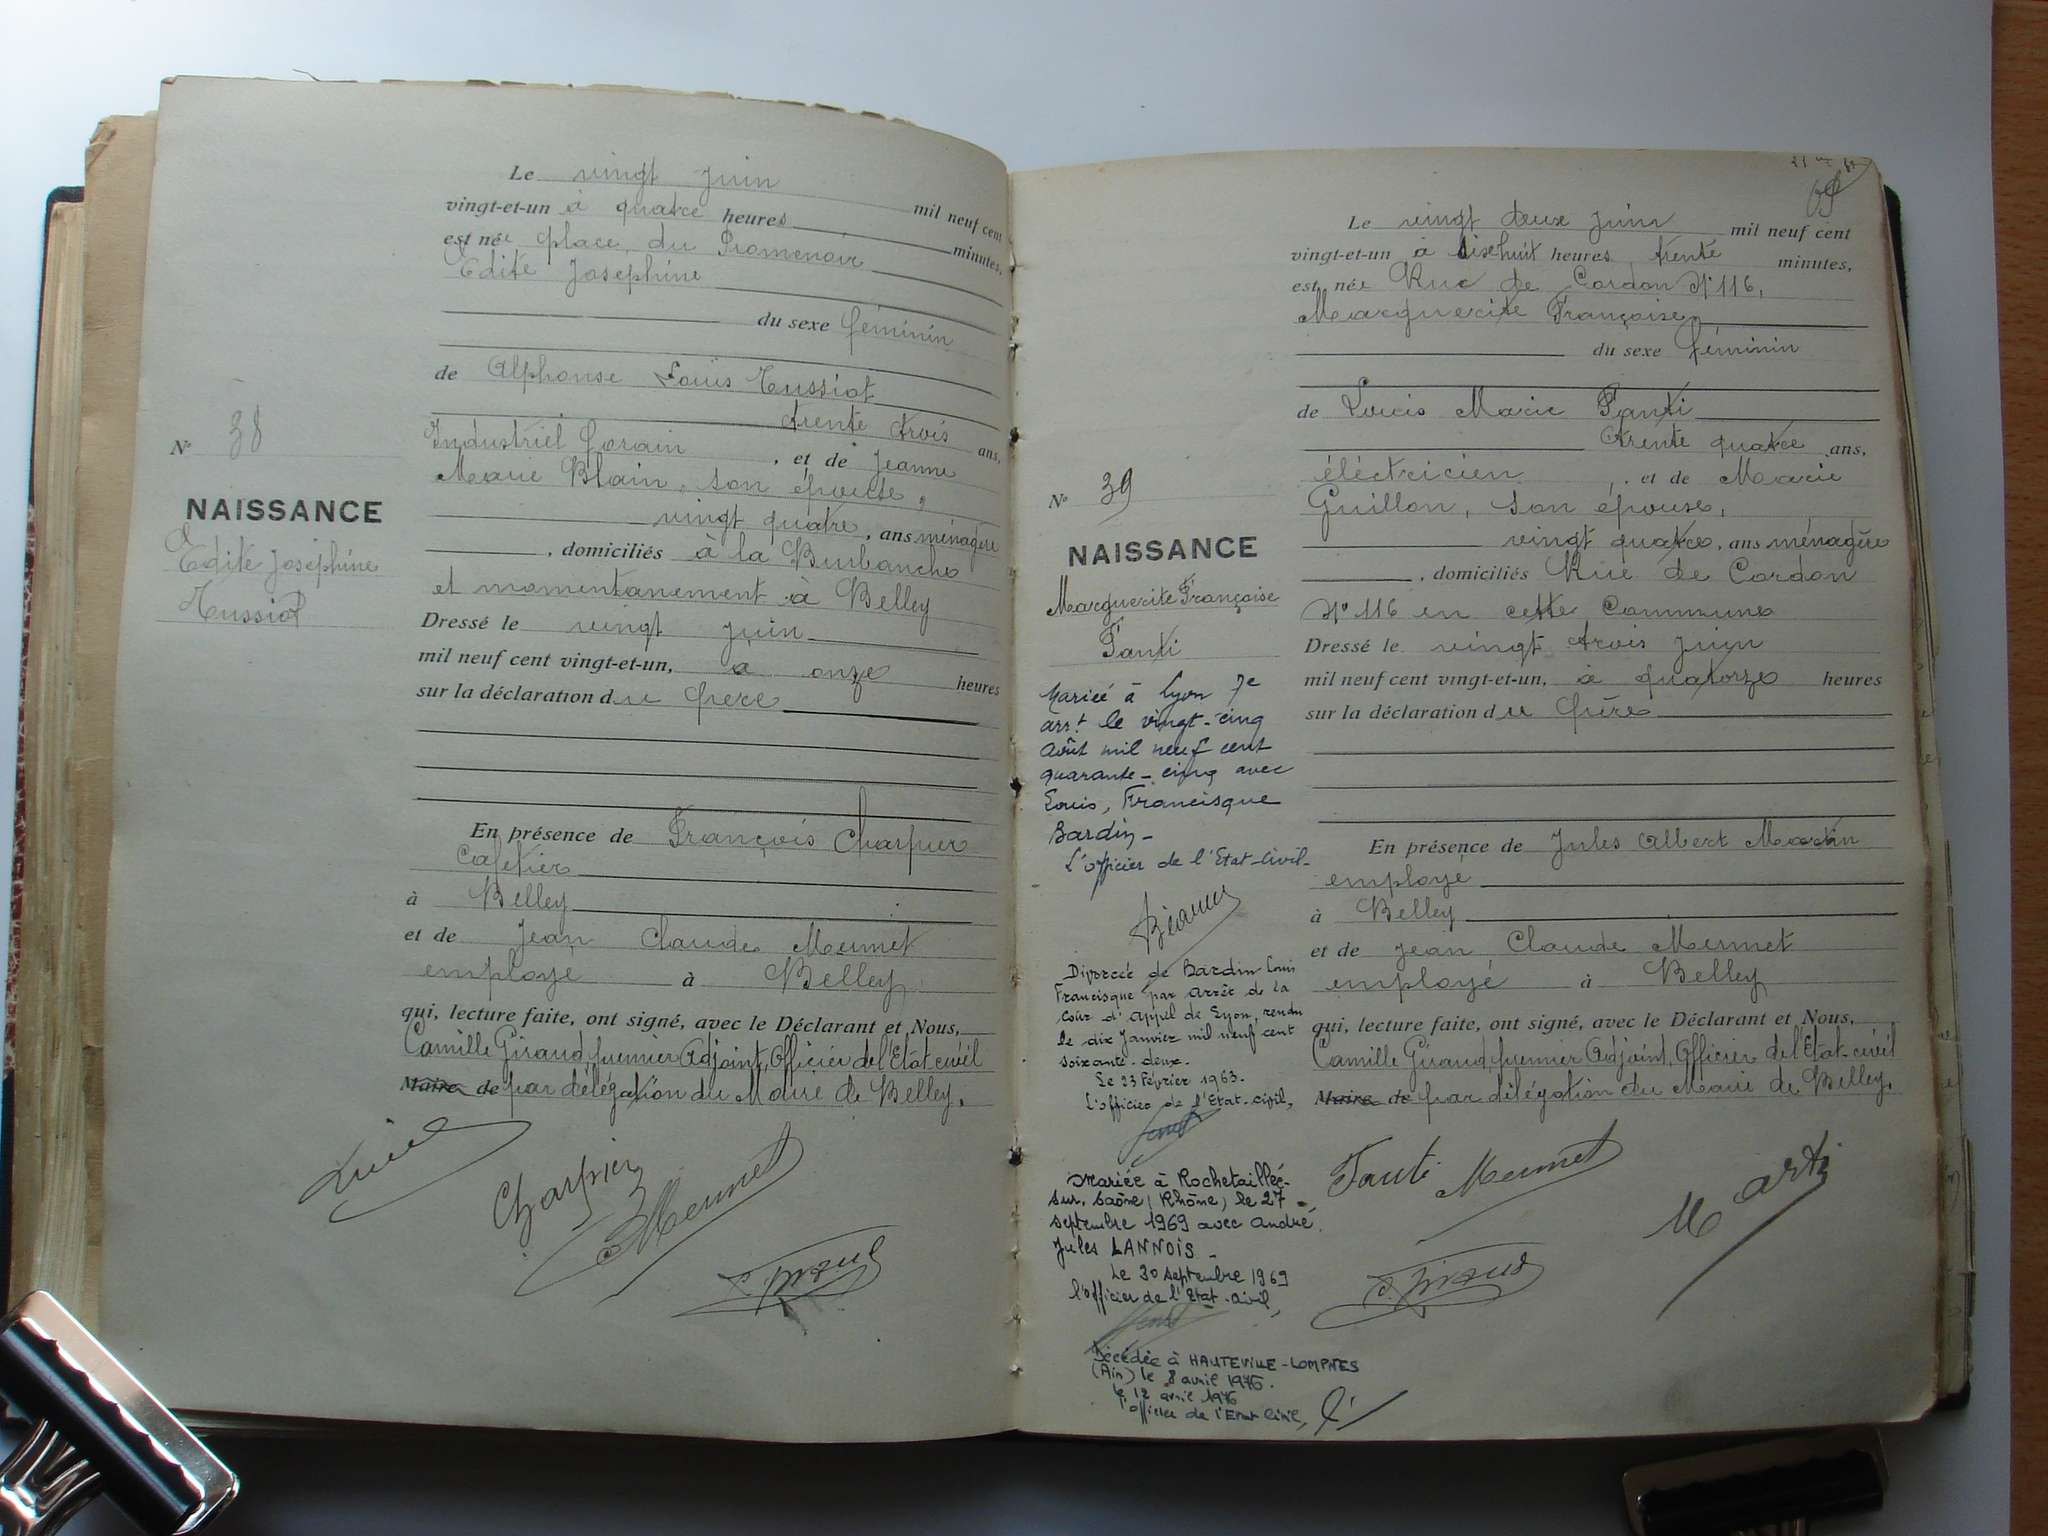 Le vingt juin mil neuf cent
vingt-et-un à quatre heures minutes,
est née place du Promenoir
Edité Josephine
du sexe féminin
de Alphonse Louis Tussiot
trente trois ans,
Industriel forain, et de Jeanne
Marie Blain, son épouse,
vingt quatre, ans ménagère
, domiciliés à la Burbanche
et momentanement à Belley
Dressé le vingt juin
mil neuf cent vingt-et-un, à onze heures
sur la déclaration du père
En présence de François Charpier
Cafetier
à Belley
et de Jean Claude Mermet
employé à Belley
qui, lecture faite, ont signé, avec le Déclarant et Nous,
Camille Giraud, premier Adjoint, Officier de l'Etat civil
Maire de par délégation du Maire de Belley.
N° 38
NAISSANCE
Edité Joséphine
Tussiot
Charpier
Mermet
C. Giraud
69
Le vingt deux juin mil neuf cent
vingt-et-un à dixhuit heures trente minutes,
est née Rue de Cordon N° 116,
Marguerite Françoise
du sexe féminin
de Louis Marie Tanti
trente quatre ans,
éléctricien, et de Marie
Guillon, son épouse,
vingt quatre, ans ménagère
, domiciliés Rue de Cordon
N° 116 en cette Commune
Dressé le vingt trois juin
mil neuf cent vingt-et-un, à quatorze heures
sur la déclaration du père
En présence de Jules Albert Martin
employé
à Belley
et de Jean Claude Mermet
employé à Belley
qui, lecture faite, ont signé, avec le Déclarant et Nous,
Camille Giraud, premier Adjoint, Officier de l'Etat-civil
Maire de par délégation du Maire de Belley.
N° 39
NAISSANCE
Marguerite Françoise
Tanti
Mariée à Lyon 7e
arrt le vingt-cinq
août mil neuf cent
quarante-cinq avec
Louis, Francisque
Bardin-
L'officier de l'Etat-Civil-
Divorcée de Bardin Louis
Francisque par arrêt de la
Cour d'Appel de Lyon, rendu
le dix Janvier mil neuf cent
soixante-deux.
Le 23 Février 1963.
L'officier de l'Etat-civil,
Mariée à Rochetaillée-
sur-Saône (Rhône) le 27
septembre 1969 avec André
Jules LANNOIS-
Le 30 septembre 1969
l'officier de l'Etat-civil,
Décédée à HAUTEVILLE-LOMPNES
(Ain) le 8 avril 1976.
le 12 avril 1976
l'officier de l'Etat Civil,
Tanti Mermet
Martin
C. Giraud